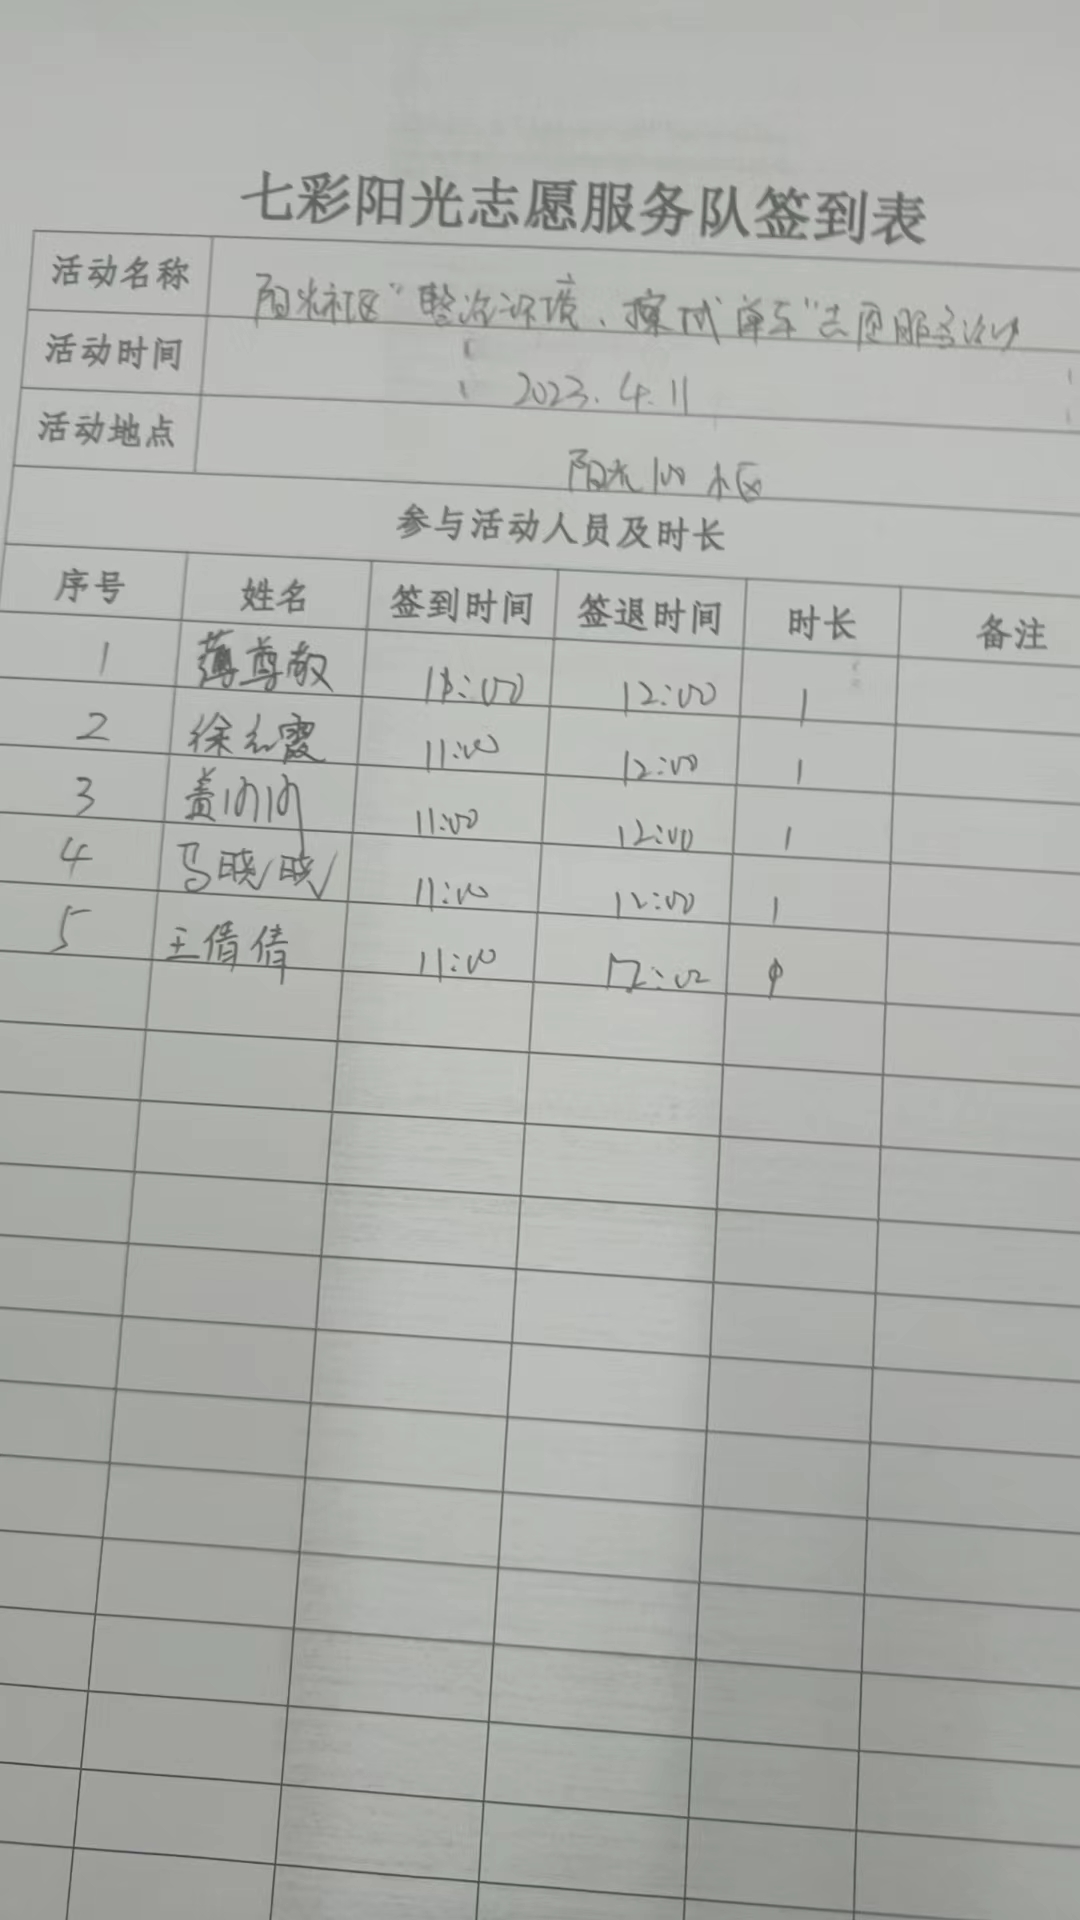 七彩阳光志愿服务队签到表
活动名称 阳光社区“整治环境、擦拭单车”志愿服务活动
活动时间 2023.4.11
活动地点 阳光100小区
参与活动人员及时长
序号 姓名 签到时间 签退时间 时长 备注
1 薄尊敬 11:00 12:00 1
2 徐红霞 11:00 12:00 1
3 盖玢玢 11:00 12:00 1
4 马晓晓 11:00 12:00 1
5 王倩倩 11:00 12:00 1